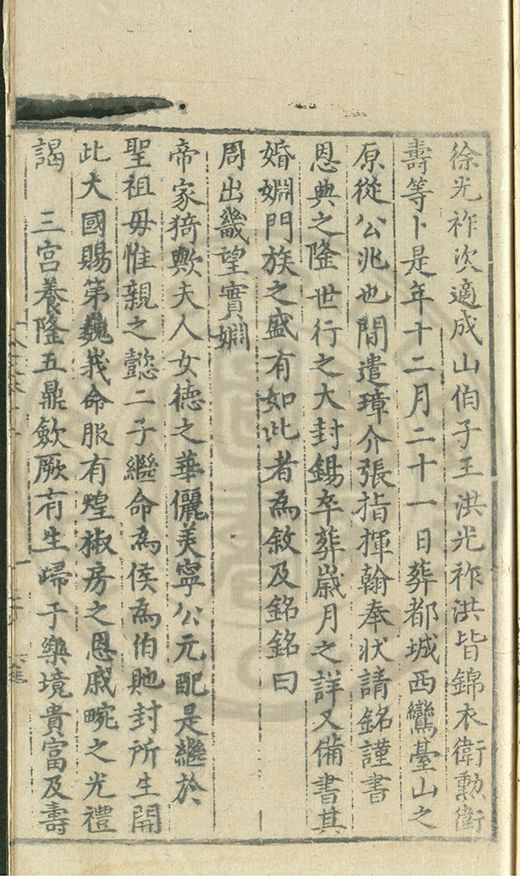 徐光祚次適成山伯子王洪光祚洪皆錦衣衛勲衛
壽等卜是年十二月二十一日葬都城西鸞臺山之
原從公兆也間遣璋介張指揮翰奉狀請銘謹書
恩典之隆世行之大封錫卒葬嵗月之詳又備書其
婚嫻門族之盛有如此者為敘及銘銘曰
周出畿望實嫻
帝家猗歟夫人女德之華儷美寧公元配是繼於
聖祖母惟親之懿二子繼命為侯為伯貤封所生開
此大國賜第巍我命服有煌椒房之恩戚畹之光禮
謁　三宮養隆五鼎斂厥有生歸于樂境貴富及壽